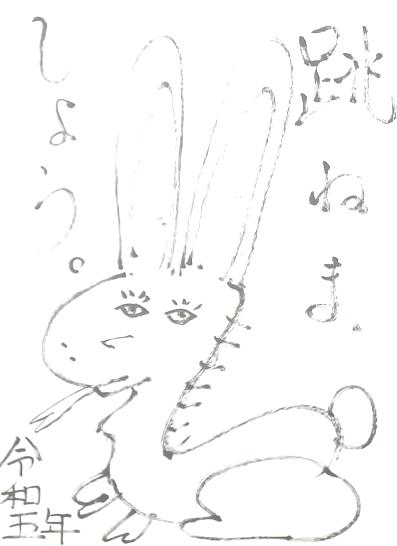 跳ねま
しょう。
令
和
五年